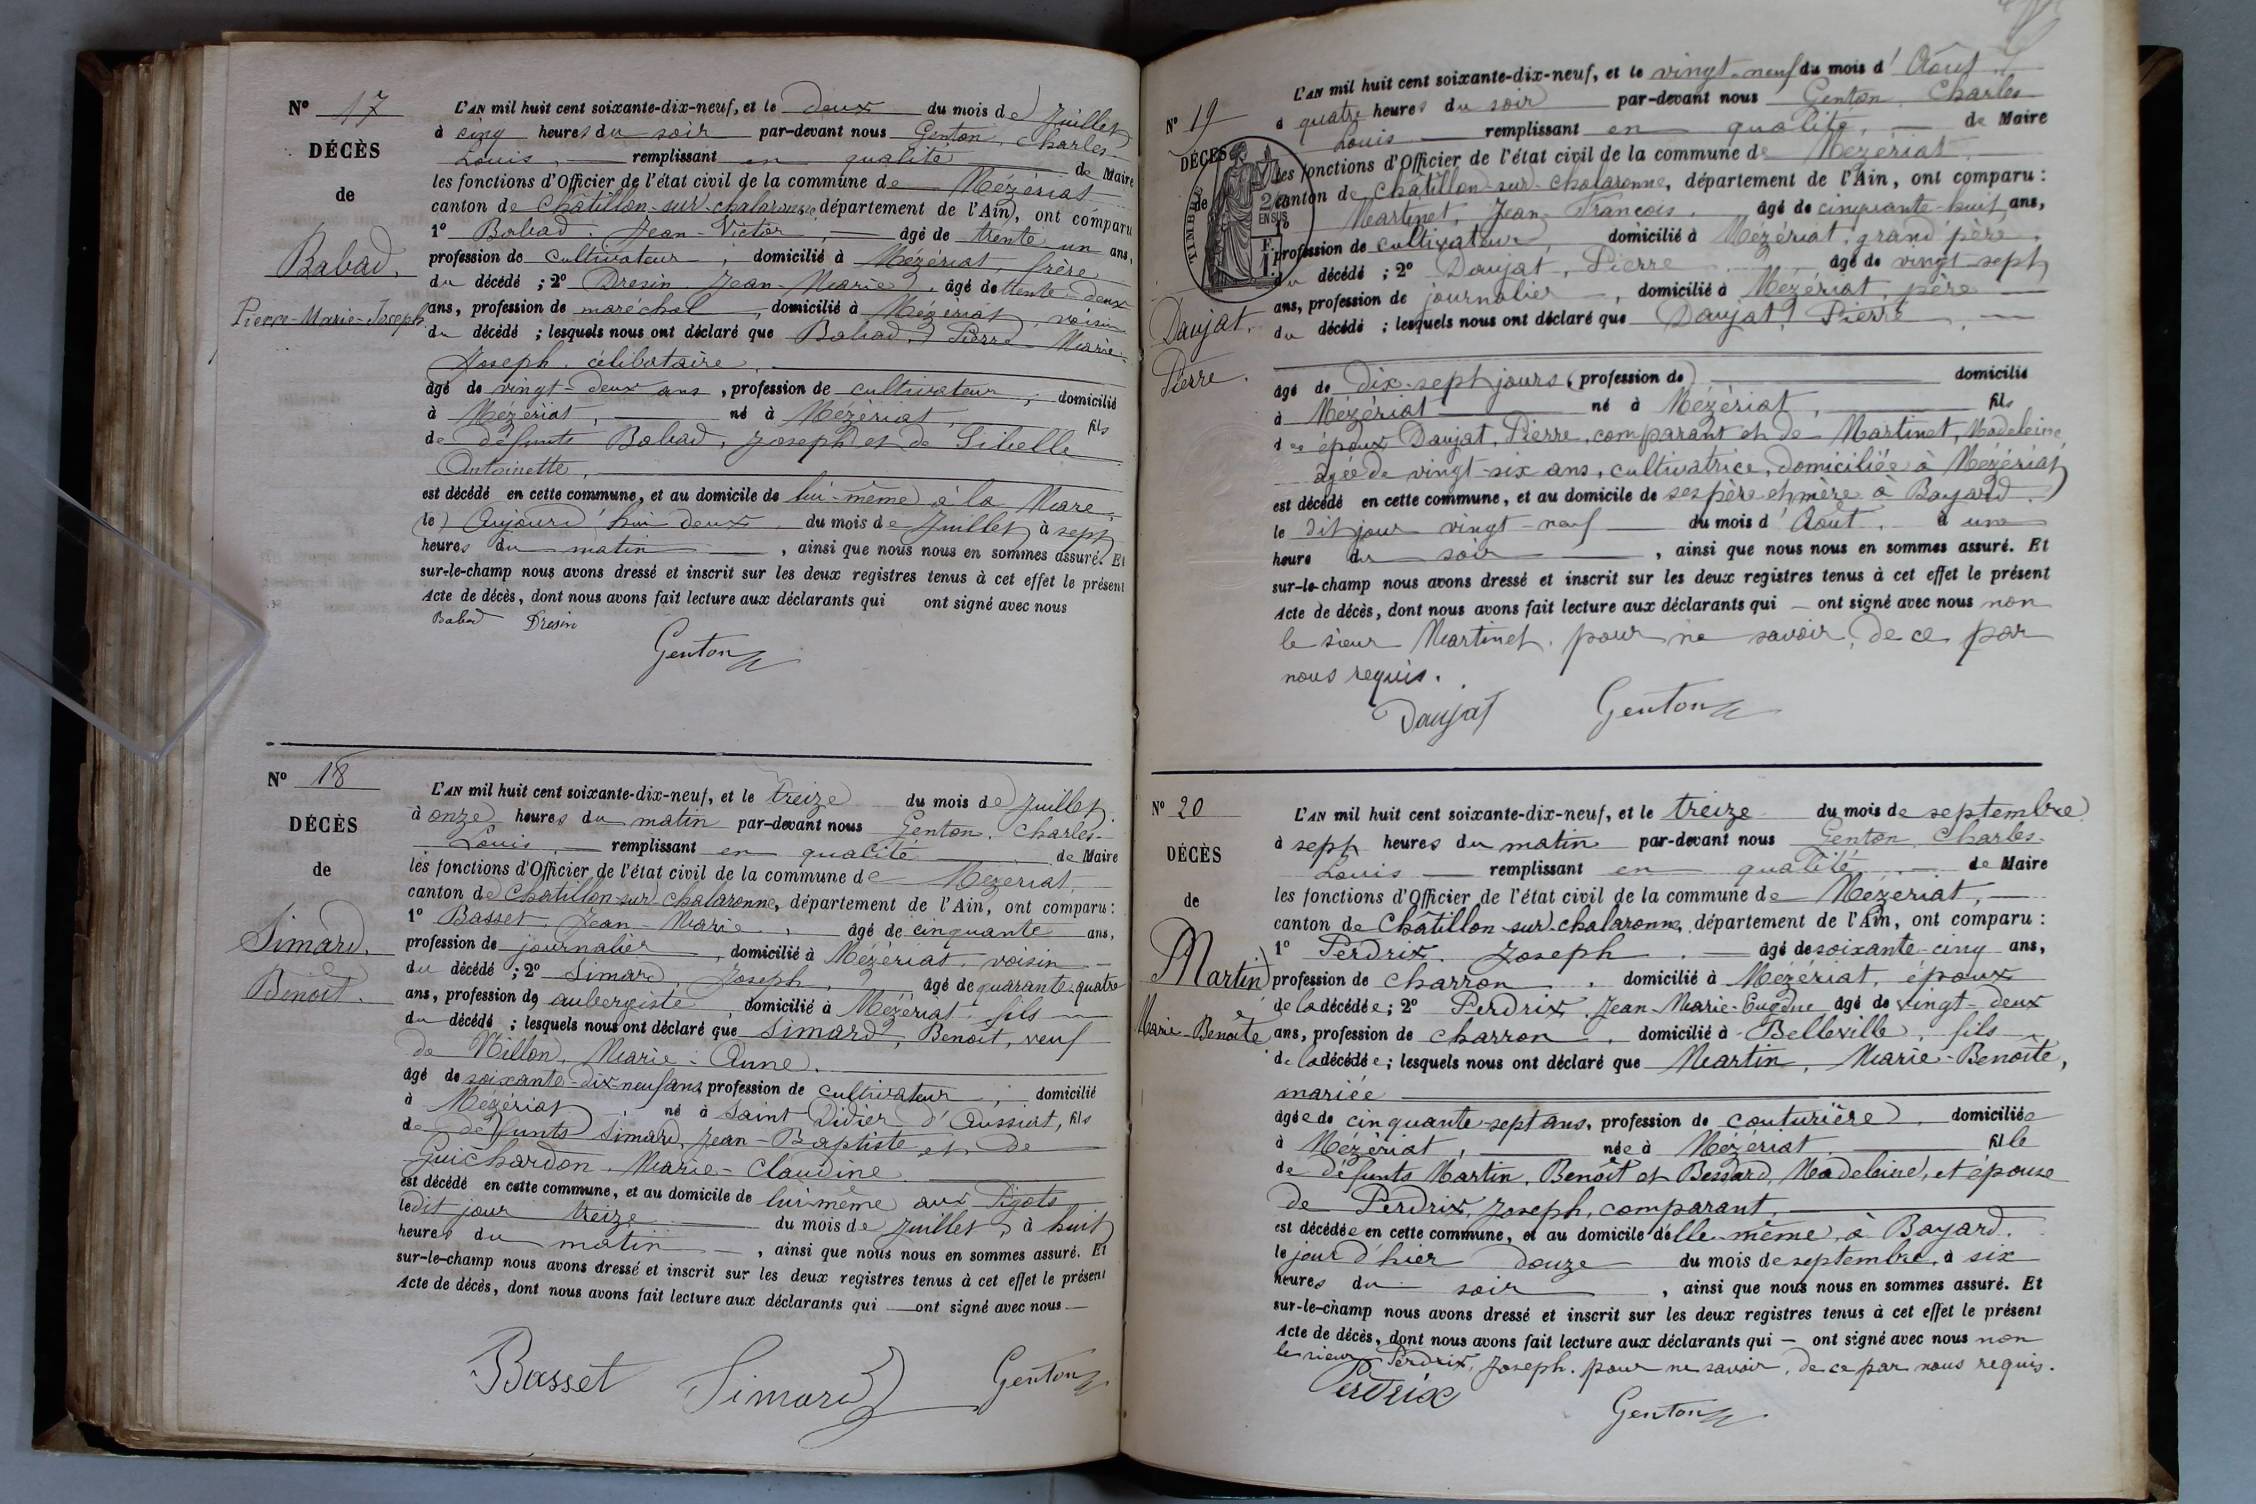 N° 17
DÉCÈS
de
Babad,
Pierre-Marie-Joseph
L'AN mil huit cent soixante-dix-neuf, et le deux du mois de Juillet
à cinq heures du soir par-devant nous Genton, Charles-
Louis, remplissant en qualité de Maire
les fonctions d'Officier de l'état civil de la commune de Mézériat
canton de Châtillon-sur-chalaronne, département de l'Ain, ont comparu
1° Babad, Jean-Victor, âgé de trente un ans,
profession de cultivateur, domicilié à Mézériat, frère
du décédé ; 2° Dresin Jean-Marie, âgé de trente-deux
ans, profession de maréchal, domicilié à Mézériat, voisin
du décédé ; lesquels nous ont déclaré que Babad, Pierre-Marie-
Joseph, célibataire
âgé de vingt-deux ans, profession de cultivateur, domicilié
à Mézériat, né à Mézériat, fils
de défunts Babad, Joseph et de Sibelle
Antoinette,
est décédé en cette commune, et au domicile de lui-même à la Mare,
le Aujourd'hui deux du mois de Juillet à sept
heures du matin, ainsi que nous nous en sommes assuré. Et
sur-le-champ nous avons dressé et inscrit sur les deux registres tenus à cet effet le présent
Acte de décès, dont nous avons fait lecture aux déclarants qui ont signé avec nous
Babad Dresin
Genton
N° 18
DÉCÈS
de
Simard,
Benoît.
L'AN mil huit cent soixante-dix-neuf, et le treize du mois de Juillet
à onze heures du matin par-devant nous Genton, Charles-
Louis, remplissant en qualité de Maire
les fonctions d'Officier de l'état civil de la commune de Mézériat,
canton de Châtillon-sur-chalaronne, département de l'Ain, ont comparu :
1° Basset, Jean-Marie, âgé de cinquante ans,
profession de journalier, domicilié à Mézériat, voisin
du décédé ; 2° Simard Joseph, âgé de quarante-quatre
ans, profession de aubergiste, domicilié à Mézériat, fils
du décédé ; lesquels nous ont déclaré que Simard, Benoît, veuf
de Millon, Marie-Anne.
âgé de soixante-dix-neuf ans, profession de cultivateur, domicilié
à Mézériat né à Saint Didier d'Aussiat, fils
de défunts Simard, Jean-Baptiste et de
Guichardon, Marie-Claudine
est décédé en cette commune, et au domicile de lui-même aux Pigots
le dit jour treize du mois de Juillet, à huit
heures du matin, ainsi que nous nous en sommes assuré. Et
sur-le-champ nous avons dressé et inscrit sur les deux registres tenus à cet effet le présent
Acte de décès, dont nous avons fait lecture aux déclarants qui ont signé avec nous
Basset Simard Genton
N° 19
DÉCÈS
de
TIMBRE
2/10
EN SUS
Daujat,
Pierre.
L'AN mil huit cent soixante-dix-neuf, et le vingt-neuf du mois d'Août
à quatre heures du soir par-devant nous Genton, Charles
Louis remplissant en qualité, de Maire
les fonctions d'Officier de l'état civil de la commune de Mézériat,
canton de Châtillon-sur-chalaronne, département de l'Ain, ont comparu :
1° Martinet, Jean-François, âgé de cinquante-huit ans,
profession de cultivateur, domicilié à Mézériat, grand père
du décédé ; 2° Daujat, Pierre, âgé de vingt-sept
ans, profession de journalier, domicilié à Mézériat, père
du décédé ; lesquels nous ont déclaré que Daujat, Pierre,
âgé de dix-sept jours (profession de) domicilié
à Mézériat né à Mézériat, fils
des époux Daujat, Pierre, comparant et de Martinet, Madeleine,
agée de vingt-six ans, cultivatrice, domiciliée à Mézériat
est décédé en cette commune, et au domicile de ses père et mère à Bayard.
le dit jour vingt-neuf du mois d'Août, à une
heure du soir, ainsi que nous nous en sommes assuré. Et
sur-le-champ nous avons dressé et inscrit sur les deux registres tenus à cet effet le présent
Acte de décès, dont nous avons fait lecture aux déclarants qui ont signé avec nous non
le sieur Martinet, pour ne savoir, de ce par
nous requis.
Daujat Genton
N° 20
DÉCÈS
de
Martin
Marie-Benoîte
L'AN mil huit cent soixante-dix-neuf, et le treize du mois de septembre
à sept heures du matin par-devant nous Genton, Charles-
Louis remplissant en qualité de Maire
les fonctions d'Officier de l'état civil de la commune de Mézériat,
canton de Châtillon-sur-chalaronne, département de l'Ain, ont comparu :
1° Perdrix, Joseph, âgé de soixante-cinq ans,
profession de charron, domicilié à Mézériat, époux
de la décédée ; 2° Perdrix, Jean-Marie-Eugène âgé de vingt-deux
ans, profession de charron, domicilié à Belleville, fils
de la décédée ; lesquels nous ont déclaré que Martin, Marie-Benoîte,
mariée
âgée de cinquante-sept ans, profession de couturière, domiciliée
à Mézériat, née à Mézériat fille
de défunts Martin, Benoît et Bessard, Madeleine, et épouse
de Perdrix, Joseph, comparant,
est décédée en cette commune, et au domicile d'elle-même, à Bayard.
le jour d'hier douze du mois de septembre, à six
heures du soir, ainsi que nous nous en sommes assuré. Et
sur-le-champ nous avons dressé et inscrit sur les deux registres tenus à cet effet le présent
Acte de décès, dont nous avons fait lecture aux déclarants qui — ont signé avec nous non
le sieur Perdrix, Joseph, pour ne savoir, de ce par nous requis.
Perdrix
Genton